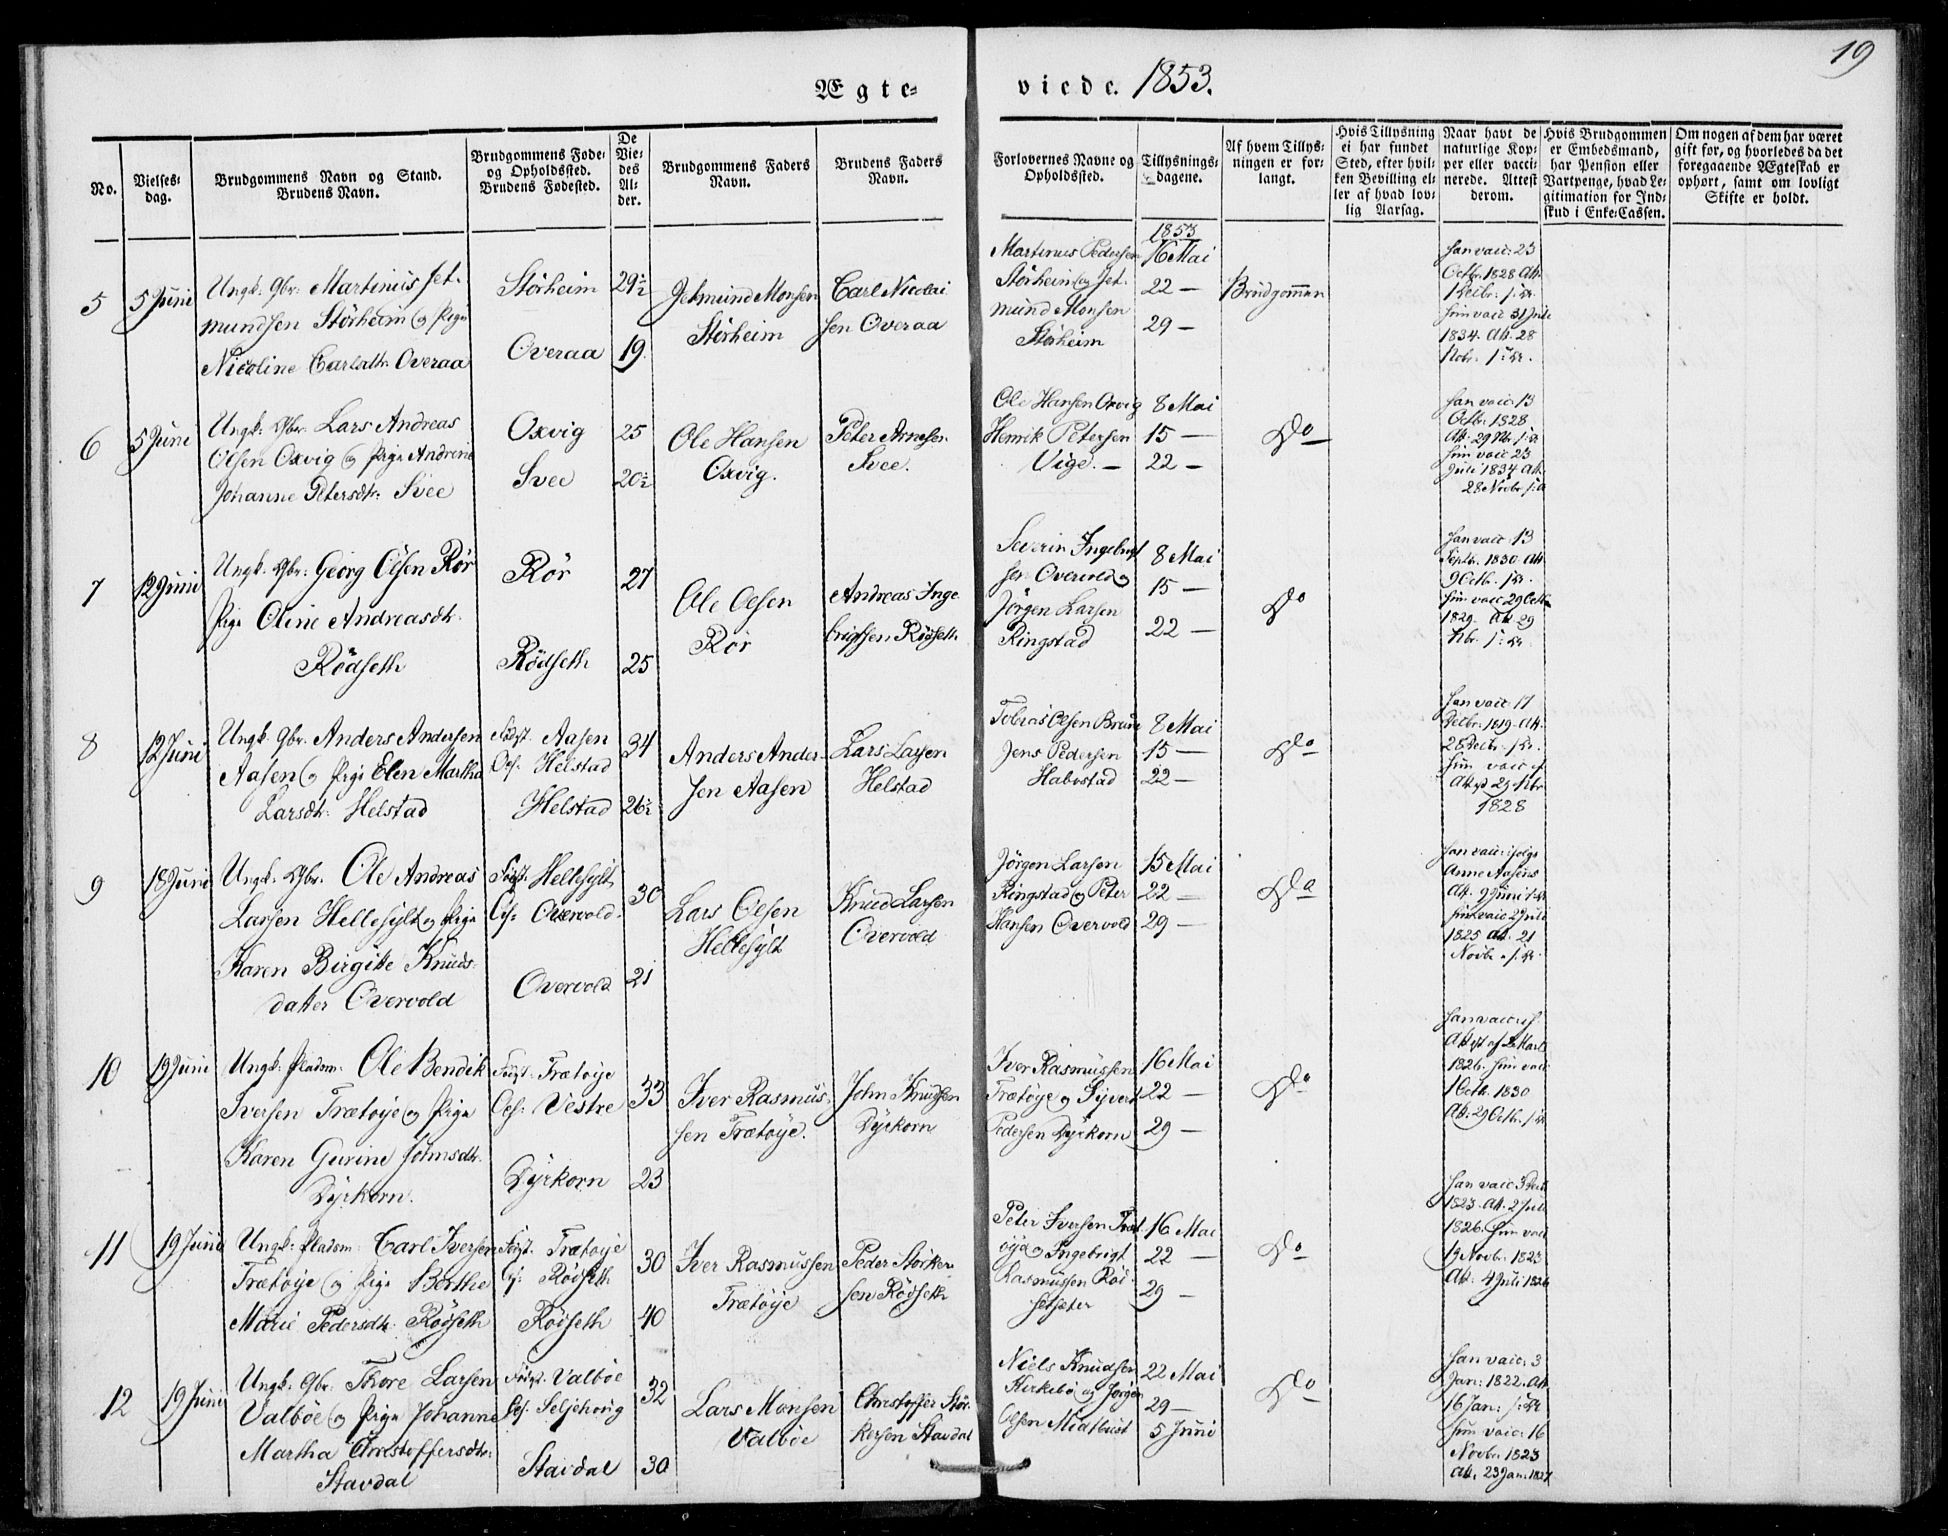 19
Ægte= viede. 1853.
No.
Vielses=
dag.
Brudgommens Navn og Stand.
Brudens Navn.
Brudgommens Føde=
og Opholdssted.
Brudens Fødested.
De
Vie=
des
Al=
der.
Brudgommens Faders
Navn.
Brudens Faders
Navn.
Forlovernes Navne og
Opholdssted.
Tillysnings=
dagene.
Af hvem Tillys=
ningen er for=
langt.
Hvis Tillysning
ei har fundet
Sted, efter hvil=
ken Bevilling el=
ler af hvad lov=
lig Aarsag.
Naar havt de
naturlige Kop=
per eller vacci=
nerede. Attest
derom.
Hvis Brudgommen
er Embedsmand,
har Pension eller
Vartpenge, hvad Le=
gitimation for Ind=
skud i Enke=Cassen.
Om nogen af dem har været
gift før, og hvorledes da det
foregaaende Ægteskab er
ophørt, samt om lovligt
Skifte er holdt.
5
5 Juni
Ungk. Gbr. Martinus Jet=
mundsen Störheim og Pige
Nicoline Carlsdtr. Overaa
Störheim
Overaa
29½
19
Jetmund Monsen
Störheim
Carl Nicolai
sen Overaa
Martinus Pedersen
Störheim og Jet=
mund Monsen
Störheim
1853
16 Mai
22 —
29 —
Brudgommen
han vacc: 23
Octbr. 1828 Att.
1 Decbr.
hun vacc 31 Juli
1834. Att. 28
Nobr.
6
5 Juni
Ungk: Gbr. Lars Andreas
Olsen Oxvig og Pige Andrine
Johanne Petersdtr. Svee
Oxvig
Svee
25
20½
Ole Hansen
Oxvig.
Peter Arnesen
Svee.
Ole Hansen Oxvig
Henrik Petersen
Vige. —
8 Mai
15 —
22 —
Do
han vacc: 13
Octbr. 1828
Att. 29 Nbr.
hun vacc 23
Juli 1834 Att.
28 Novbr.
7
12 Juni
Ungk. Gbr: Georg Olsen Rör
Pige Oline Andreasdtr.
Rödseth
Rör
Rödseth
27
25
Ole Olsen
Rör
Andreas Inge
brigtsen Rödseth
Severin Ingebrigt
sen Overvold og
Jörgen Larsen
Ringstad
8 Mai
15 —
22 —
Do
han vacc: 13
Septbr. 1830 Att.
9 Octb.
hun vacc 29 Octb
1829. Att 29
Nbr.
8
12 Juni
Ungk. Gbr. Anders Andersen
Aasen og Pige Elen Martha
Larsdtr. Helstad
Födst. Aasen
Oph: Helstad
Helstad
34
26½
Anders Ander
sen Aasen
Lars Larsen
Helstad
Tobias Olsen Braute
Jens Pedersen
Habostad
8 Mai
15 —
22 —
Do
han vacc: 17
Decbr. 1819. Att.
28 Decbr.
hun vacc
Att 29 Nbr
1828
9
18 Juni
Ungk. Gbr. Ole Andreas
Larsen Hellesylt og Pige
Karen Birgitte Knuds=
datter Overvold
Födst. Hellesylt
Oph: Overvold
Overvold
30
21
Lars Olsen
Hellesylt
Knud Larsen
Overvold
Jörgen Larsen
Ringstad og Peter
Hansen Overvold
15 Mai
22 —
29 —
Do
han vacc: ifølge
Anne Aasens
Att. 9 Juni
hun vacc 2 Juli
1825 Att. 21
Novbr.
10
19 Juni
Ungk: Pladsm. Ole Bendik
Iversen Trætöye og Pige
Karen Gurine Johnsdtr.
Dyrkorn.
Födst. Trætöye
Oph: Vestre
Dyrkorn
33
23
Iver Rasmus
sen Trætöye.
John Knudsen
Dyrkorn
Iver Rasmussen
Trætöye og Syvert
Pedersen Dyrkorn
16 Mai
22 —
29 —
Do
han vacc:
Att. af 2 Marts
1826. hun vacc
1 Octb. 1830
Att: 29 Octb.
11
19 Juni
Ungk: Pladsm. Carl Iversen
Trætöye og Pige Berthe
Marie Pedersdtr. Rödseth
Födst. Trætöye
Oph: Rödseth
Rödseth
30
40
Iver Rasmussen
Trætöye
Peder Störker
sen Rödseth
Peter Iversen Træt
öye og Ingebrigt
Rasmussen Röd=
sethseter
16 Mai
22 —
29 —
Do
han vacc: 3
1823. Att. 2 Juli
1826. hun vacc
19 Novbr. 1823
Att: 4 Juli 1826
12
19 Juni
Ungk: Gbr. Thore Larsen
Valböe og Pige Johanne
Martha Christoffersdtr.
Stavdal
Födst. Valböe
Oph. Seljehoug
Stavdal
32
30
Lars Monsen
Valböe
Christoffer Stör
kersen Stavdal
Niels Knudsen
Kirkebö og Jörgen
Olsen Midtbust
22 Mai
29 —
5 Juni
Do
han vacc: 3
Jan: 1822. Att.
16 Jan:
hun vacc: 16
Novbr. 1823
Att. 23 Jan: 1827